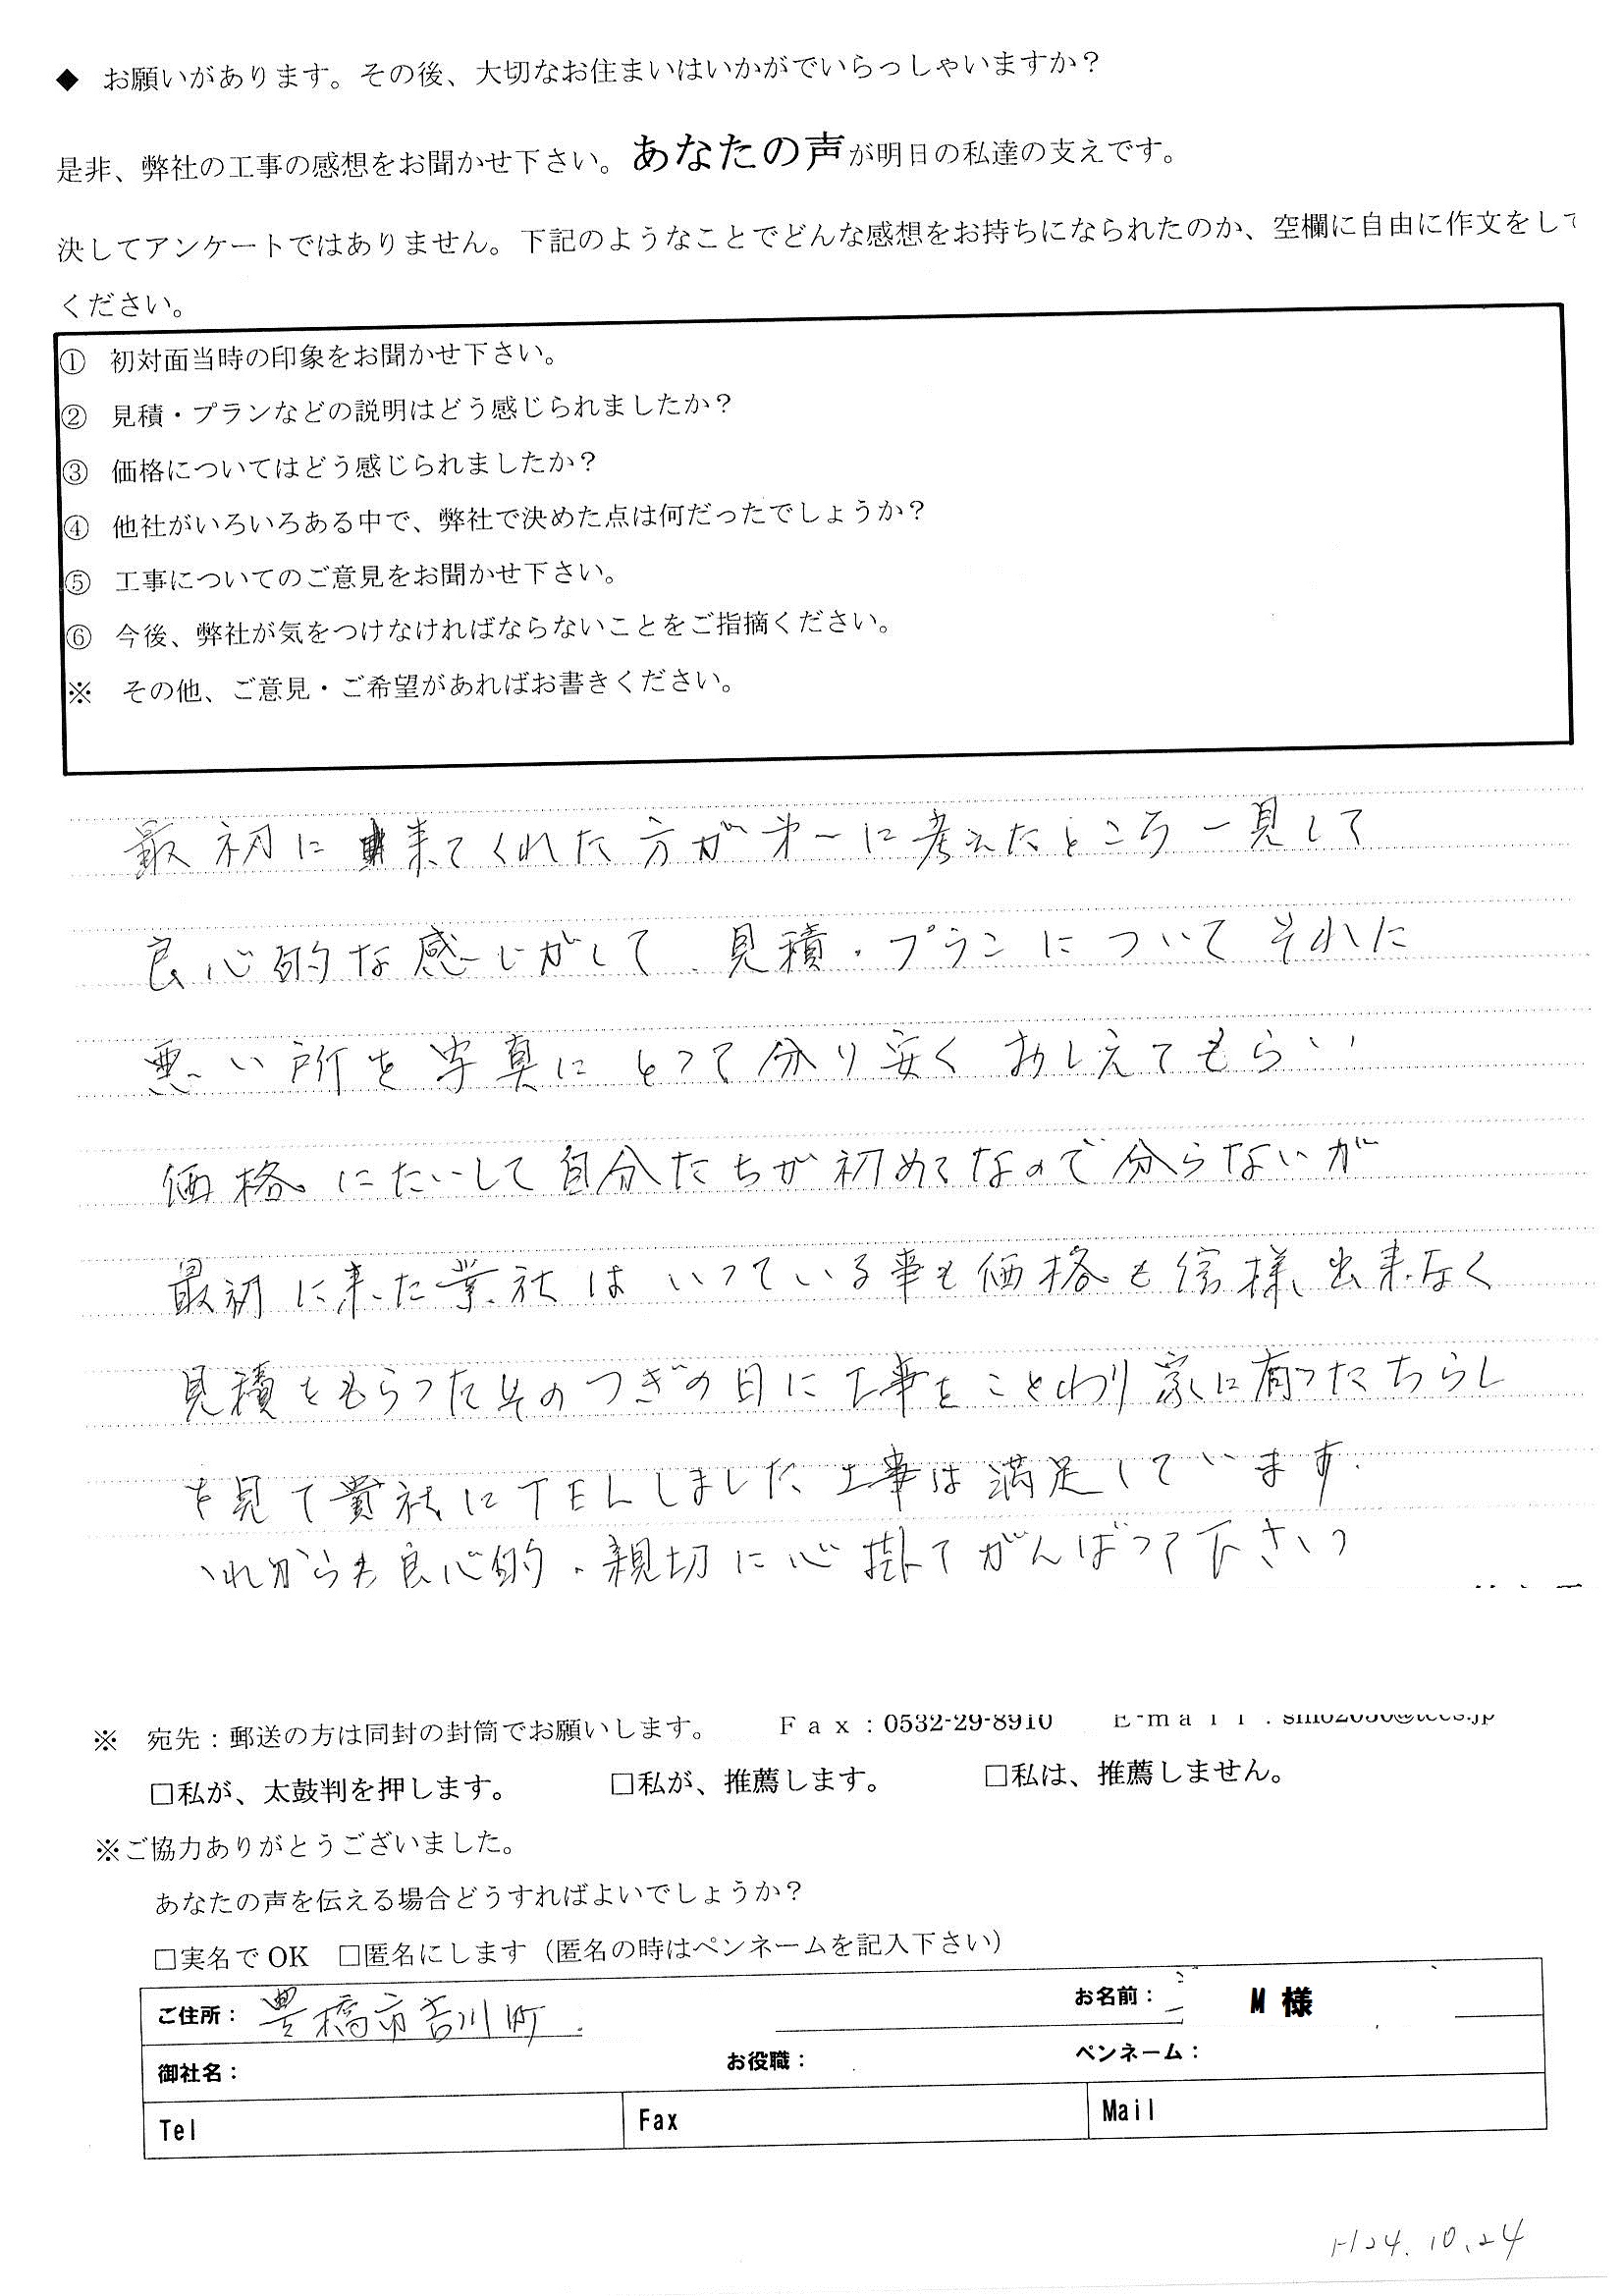 ◆ お願いがあります。その後、大切なお住まいはいかがでいらっしゃいますか？
是非、弊社の工事の感想をお聞かせ下さい。あなたの声が明日の私達の支えです。
決してアンケートではありません。下記のようなことでどんな感想をお持ちになられたのか、空欄に自由に作文をして
ください。
① 初対面当時の印象をお聞かせ下さい。
② 見積・プランなどの説明はどう感じられましたか？
③ 価格についてはどう感じられましたか？
④ 他社がいろいろある中で、弊社で決めた点は何だったでしょうか？
⑤ 工事についてのご意見をお聞かせ下さい。
⑥ 今後、弊社が気をつけなければならないことをご指摘ください。
※ その他、ご意見・ご希望があればお書きください。
最初に来てくれた方が才一に考えたところ一見して
良心的な感じがして 見積・プランについて それに
悪い所を写真にとって分り安くおしえてもらい
価格にたいして自分たちが初めてなので分らないが
最初に来た業社はいっている事も価格も信様出来なく
見積をもらったそのつぎの日に工事をことわり家に有ったちらし
を見て貴社にTELしました工事は満足しています.
これからも良心的・親切に心掛てがんばって下さい
※ 宛先：郵送の方は同封の封筒でお願いします。 Ｆａｘ：0532-29-8910 E-mail：
□私が、太鼓判を押します。 □私が、推薦します。 □私は、推薦しません。
※ご協力ありがとうございました。
あなたの声を伝える場合どうすればよいでしょうか？
□実名でOK □匿名にします（匿名の時はペンネームを記入下さい）
ご住所： 豊橋市吉川町 お名前： M 様
御社名： お役職： ペンネーム：
Tel Fax Mail
H24.10.24